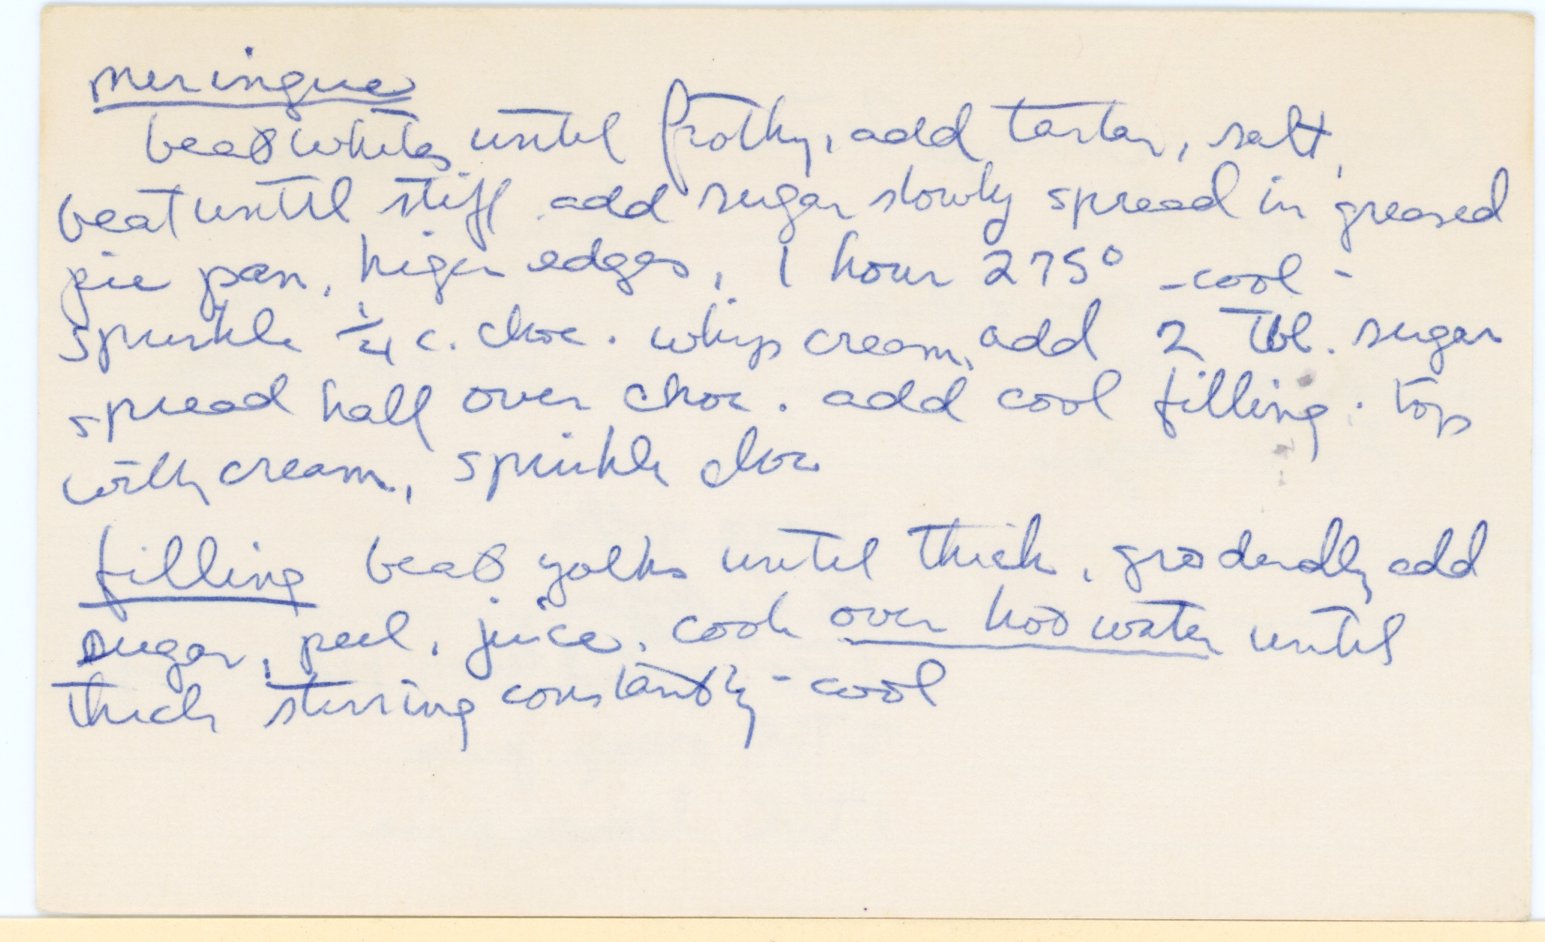 meringue
beat whites until frothy, add tartar, salt,
beat until stiff add sugar slowly spread in greased
pie pan, higer edges, 1 hour 275° - cool -
sprinkle 1/4 c. choc. whip cream, add 2 Tbl. sugar
spread half over choc. add cool filling. top
with cream, sprinkle choc
filling beat yolks until thick, gradually add
sugar, peel, juice, cook over hot water until
thick stirring constantly - cool